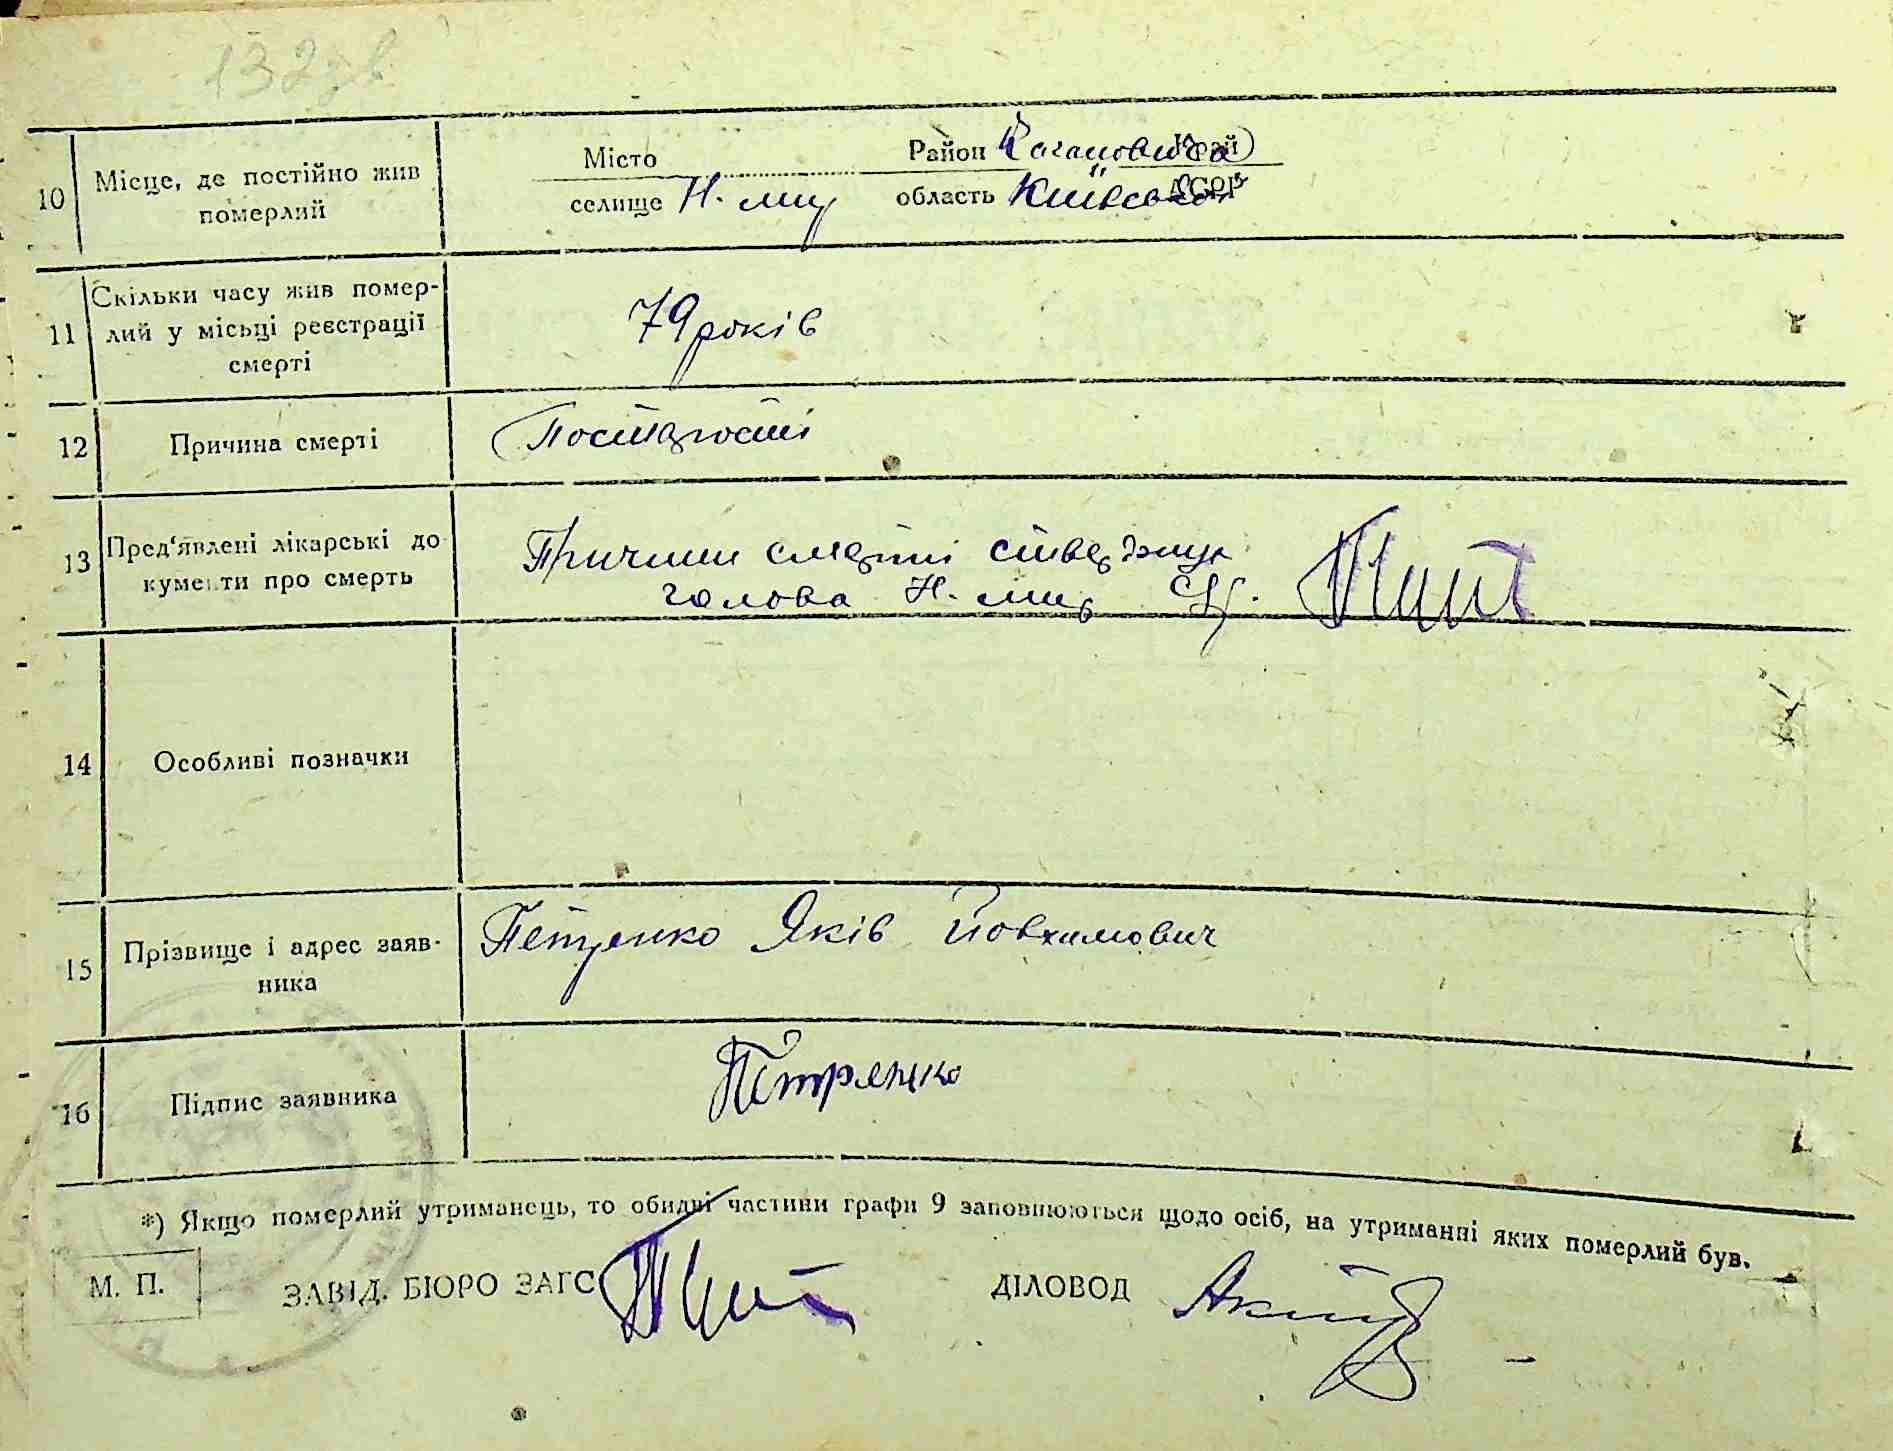 132 зв
10 Місце, де постійно жив померлий
Місто Район Кагановича Край
селище Н. мир область Київська АСРР
11 Скільки часу жив помер-
лий у місьці реєстрації
смерті
79 років
12 Причина смерті
Постарості
13 Пред'явлені лікарські до
кументи про смерть
Причини смерті ствержую
голова Н. мир С/р.
14 Особливі позначки
15 Прізвище і адрес заяв-
ника
Петренко Яків Йовхимович
16 Підпис заявника
Петренко
*) Якщо померлий утриманець, то обидві частини графи 9 заповнюються щодо осіб, на утриманні яких померлий був.
М. П. ЗАВІД. БЮРО ЗАГС ДІЛОВОД